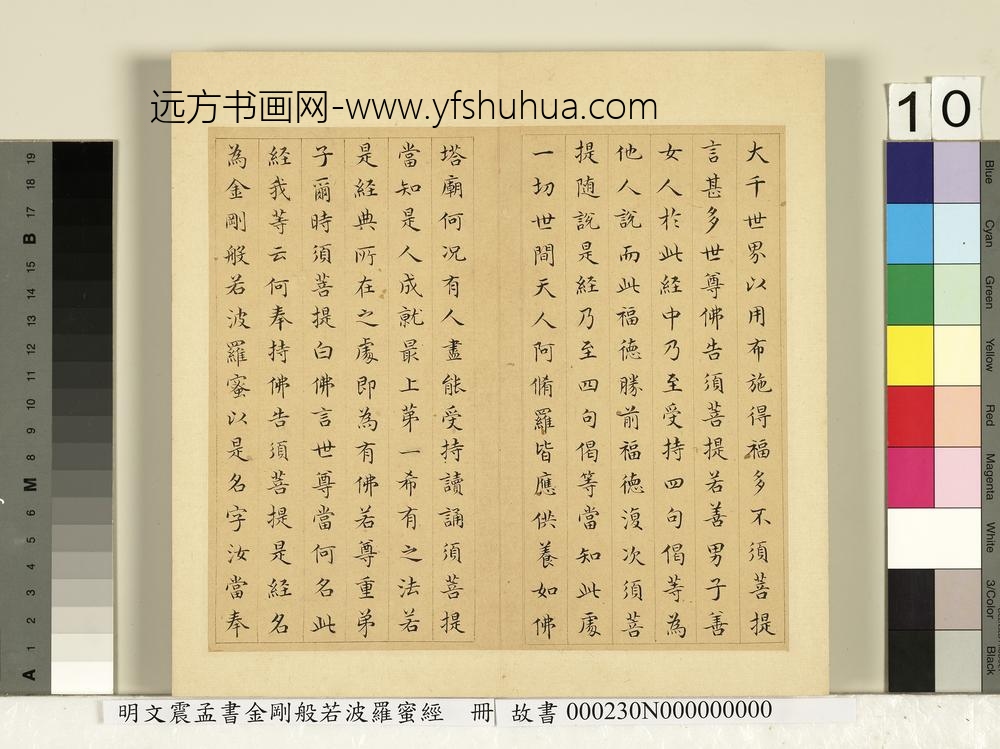 远方书画网-www.yfshuhua.com
10
大千世界以用布施得福多不須菩提
言甚多世尊佛告須菩提若善男子善
女人於此經中乃至受持四句偈等為
他人說而此福德勝前福德復次須菩
提随說是経乃至四句偈等當知此處
一切世間天人阿脩羅皆應供養如佛
塔廟何况有人盡能受持讀誦須菩提
當知是人成就最上苐一希有之法若
是経典所在之處即為有佛若尊重弟
子爾時須菩提白佛言世尊當何名此
経我等云何奉持佛告須菩提是経名
為金剛般若波羅蜜以是名字汝當奉
A 1 2 3 4 5 6 M 8 9 10 11 12 13 14 15 B 17 18 19
Blue
Cyan
Green
Yellow
Red
Magenta
White
3/Color
Black
明文震孟書金剛般若波羅蜜經 冊 故書 000230N000000000